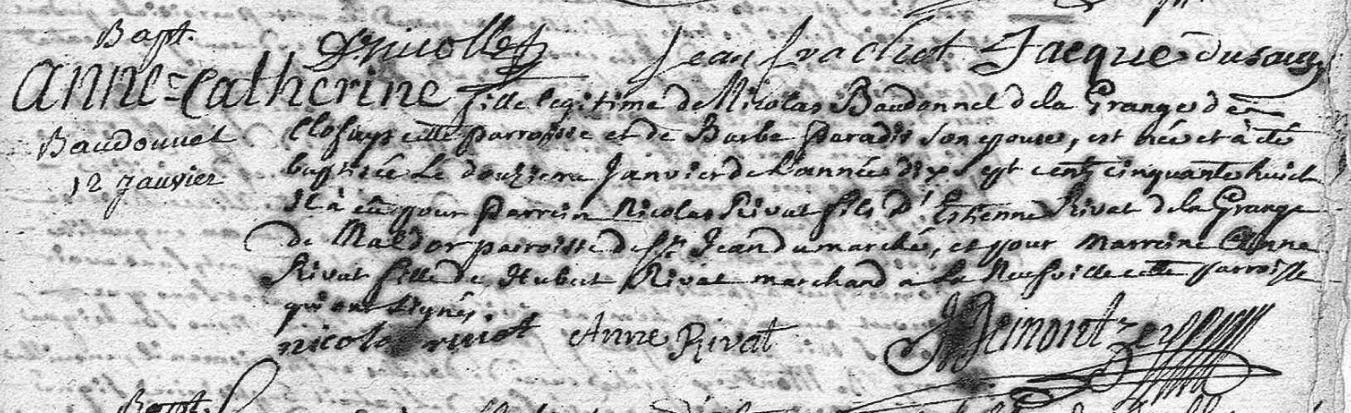 Bapt.
D nicolle Jean frachot Jacque dusaug
Anne=Catherine fille legitime de Nicolas Baudonnel de la Granges de
Baudonnel
Closuys cette parroisse et de Barbe paradis son epouse, est née et à été
12 Janvier
baptisée Le douzieme Janvier de l'année dix sept cent cinquante huict
Il à eu pour parrein Nicolas Rivat fils d'Estienne Rivat de la Grange
de Maldor parroisse de St Jean du marché, et pour marreine Anne
Rivat fille de Hubert Rivat marchand à La Neufville cette parroisse
qui ont signés
nicolas rivot Anne Rivat Demontzey
Bapt.